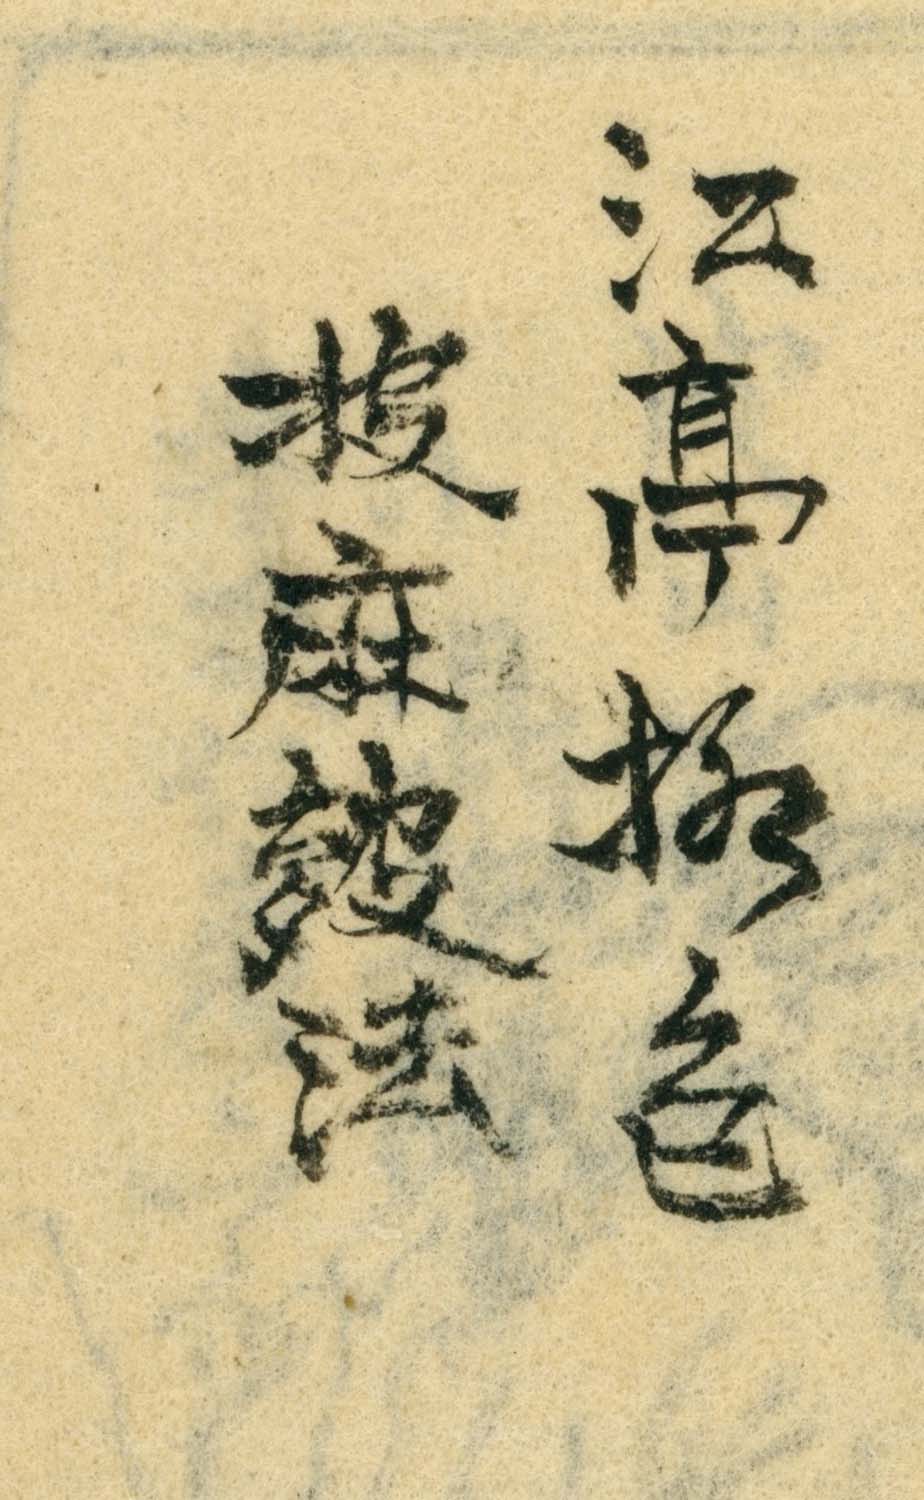 江亭色
披麻皴法